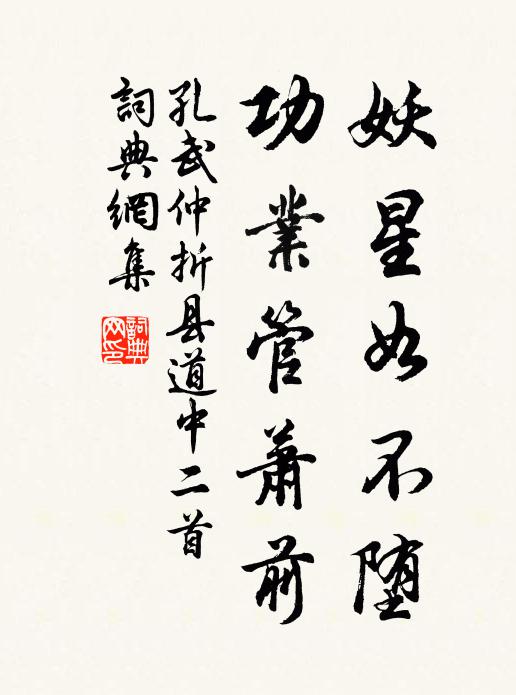 妖星如不堕
功業管蕭前
孔武仲折县道中二首
詞典網集
詞典
网印